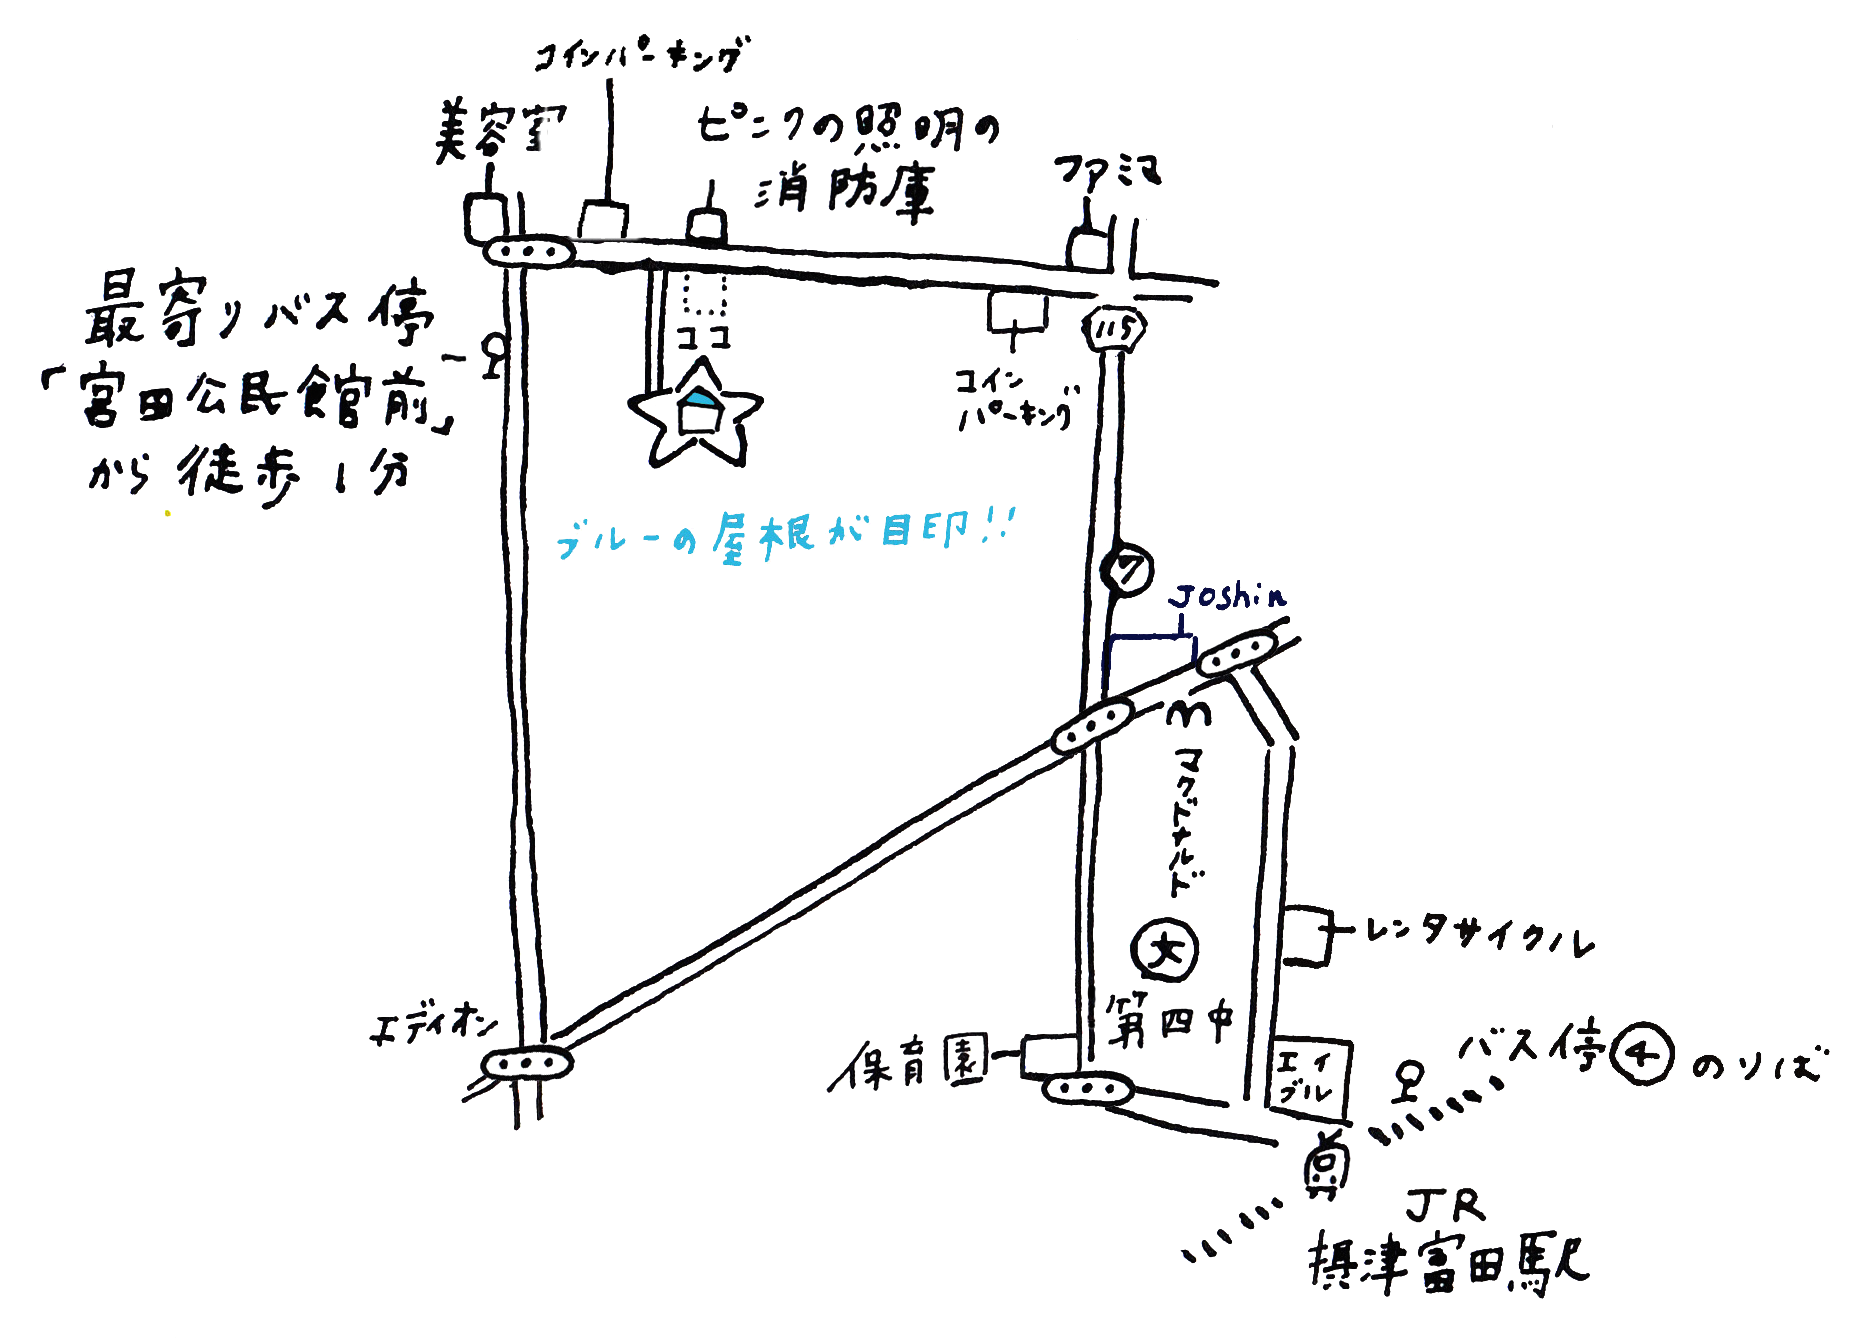 コインパーキング
美容室
ピンクの照明の
消防庫
ファミマ
最寄りバス停
「宮田公民館前」
から徒歩1分
ココ
115
コイン
パーキング
ブルーの屋根が目印!!
ク
Joshin
m
マクドナルド
文
第四中
レンタサイクル
エディオン
保育園
エイ
ブル
バス停④のりば
JR
摂津富田駅